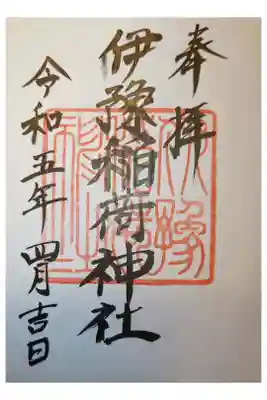 奉拝
伊豫稲荷神社
令和五年四月吉日